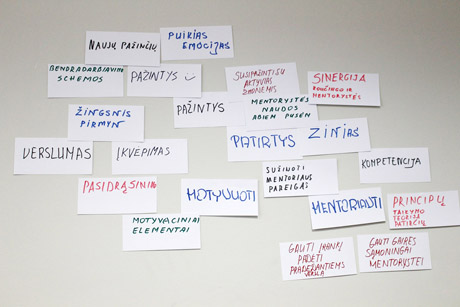 NAUJŲ PAŽINČIŲ
PUIKIAS
EMOCIJAS
BENDRADARBIAVIMO
SCHEMOS
PAŽINTYS
SUSIPAŽINTI SU
AKTYVIAS
ŽMONĖMIS
SINERGIJA
KOUČINGO IR
MENTORYSTĖS
PAŽINTYS
MENTORYSTĖS
NAUDOS
ABIEM PUSĖM
ŽINGSNIS
PIRMYN
PATIRTYS
ŽINIAS
VERSLUMAS
ĮKVĖPIMAS
SUŽINOTI
MENTORIAUS
PAREIGAS
KOMPETENCIJA
MOTYVUOTI
MENTORIAUTI
PRINCIPŲ
TAIKYMO
TEORIJA
MOTYVACINIAI
ELEMENTAI
GAUTI ĮRANKĮ
PADĖTI
PRADEDANTIEMS
VERSLĄ
GAUTI GAIRES
SĄMONINGAI
MENTORYSTEI